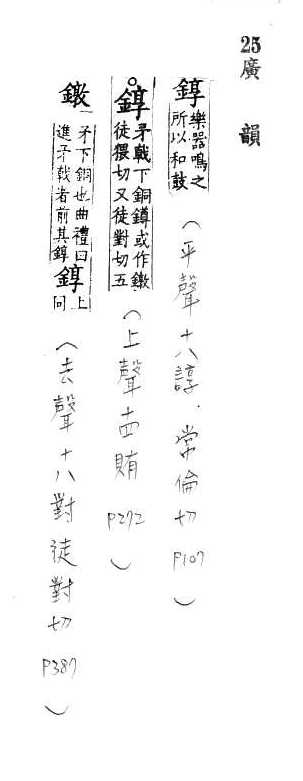 25廣韻
錞樂器鳴之所以和鼓(平聲十八諄.常倫切P107)
錞矛戟下銅鐏或作鐓徒猥切又徒對切五(上聲十四賄P272)
鐓矛下銅也曲禮曰進矛戟者前其錞錞上同(去聲十八對徒對切P387)